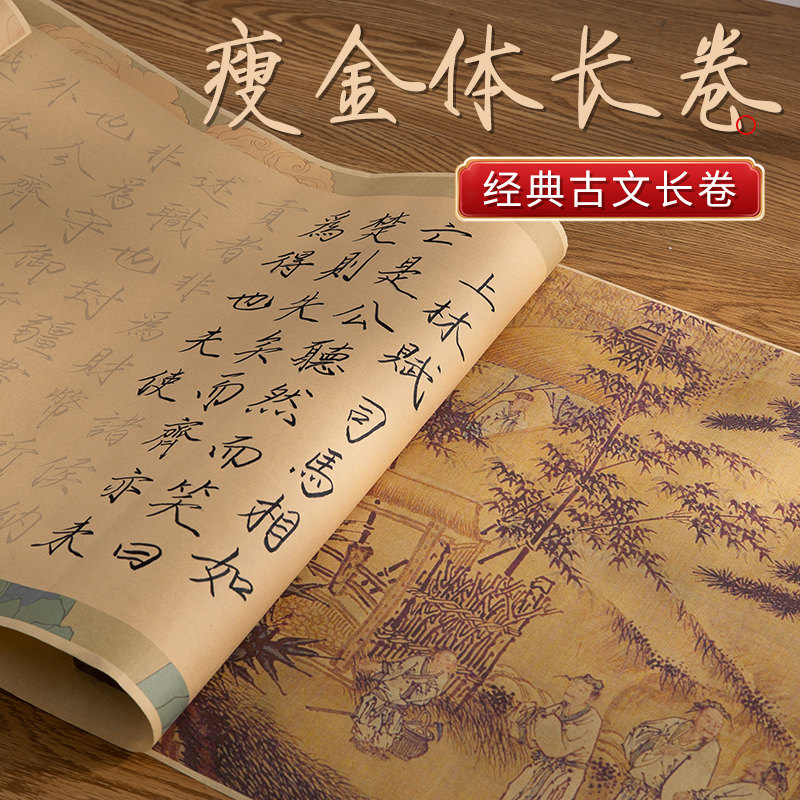 瘦金体长卷
经典古文长卷
上林賦司馬相如
亡是公聽然而笑曰
楚則失矣而齊亦未
為得也夫使諸侯納
貢者非為財幣所
述職也封疆
非為守御
也今齊
外